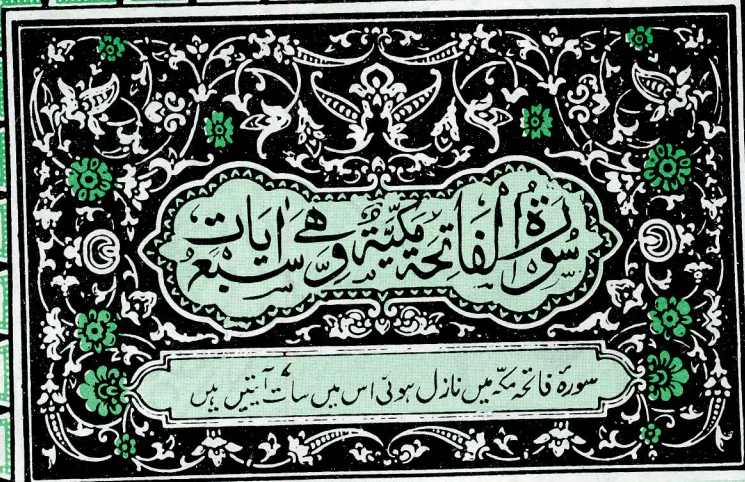 سُوْرَةُ الْفَاتِحَةِ مَكِّيَّةٌ وَّهِیَ سَبْعُ اٰیَات
سورۂ فاتحہ مکہ میں نازل ہوئی اس میں سات آیتیں ہیں